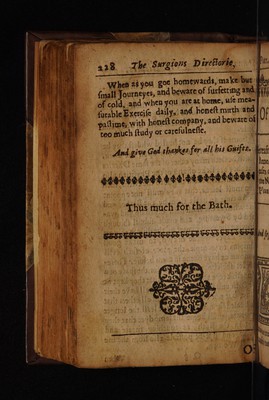 228 The Surgions Directorie,
When as you goe homewards, make but
small Journeyes, and beware of surfetting and
of cold, and when you are at home, use mea-
surable Exercise daily, and honest mirth and
pastime, with honest company, and beware of
too much study or carefulnesse.
And give God thankes for all his Guifts.
Thus much for the Bath.
OF